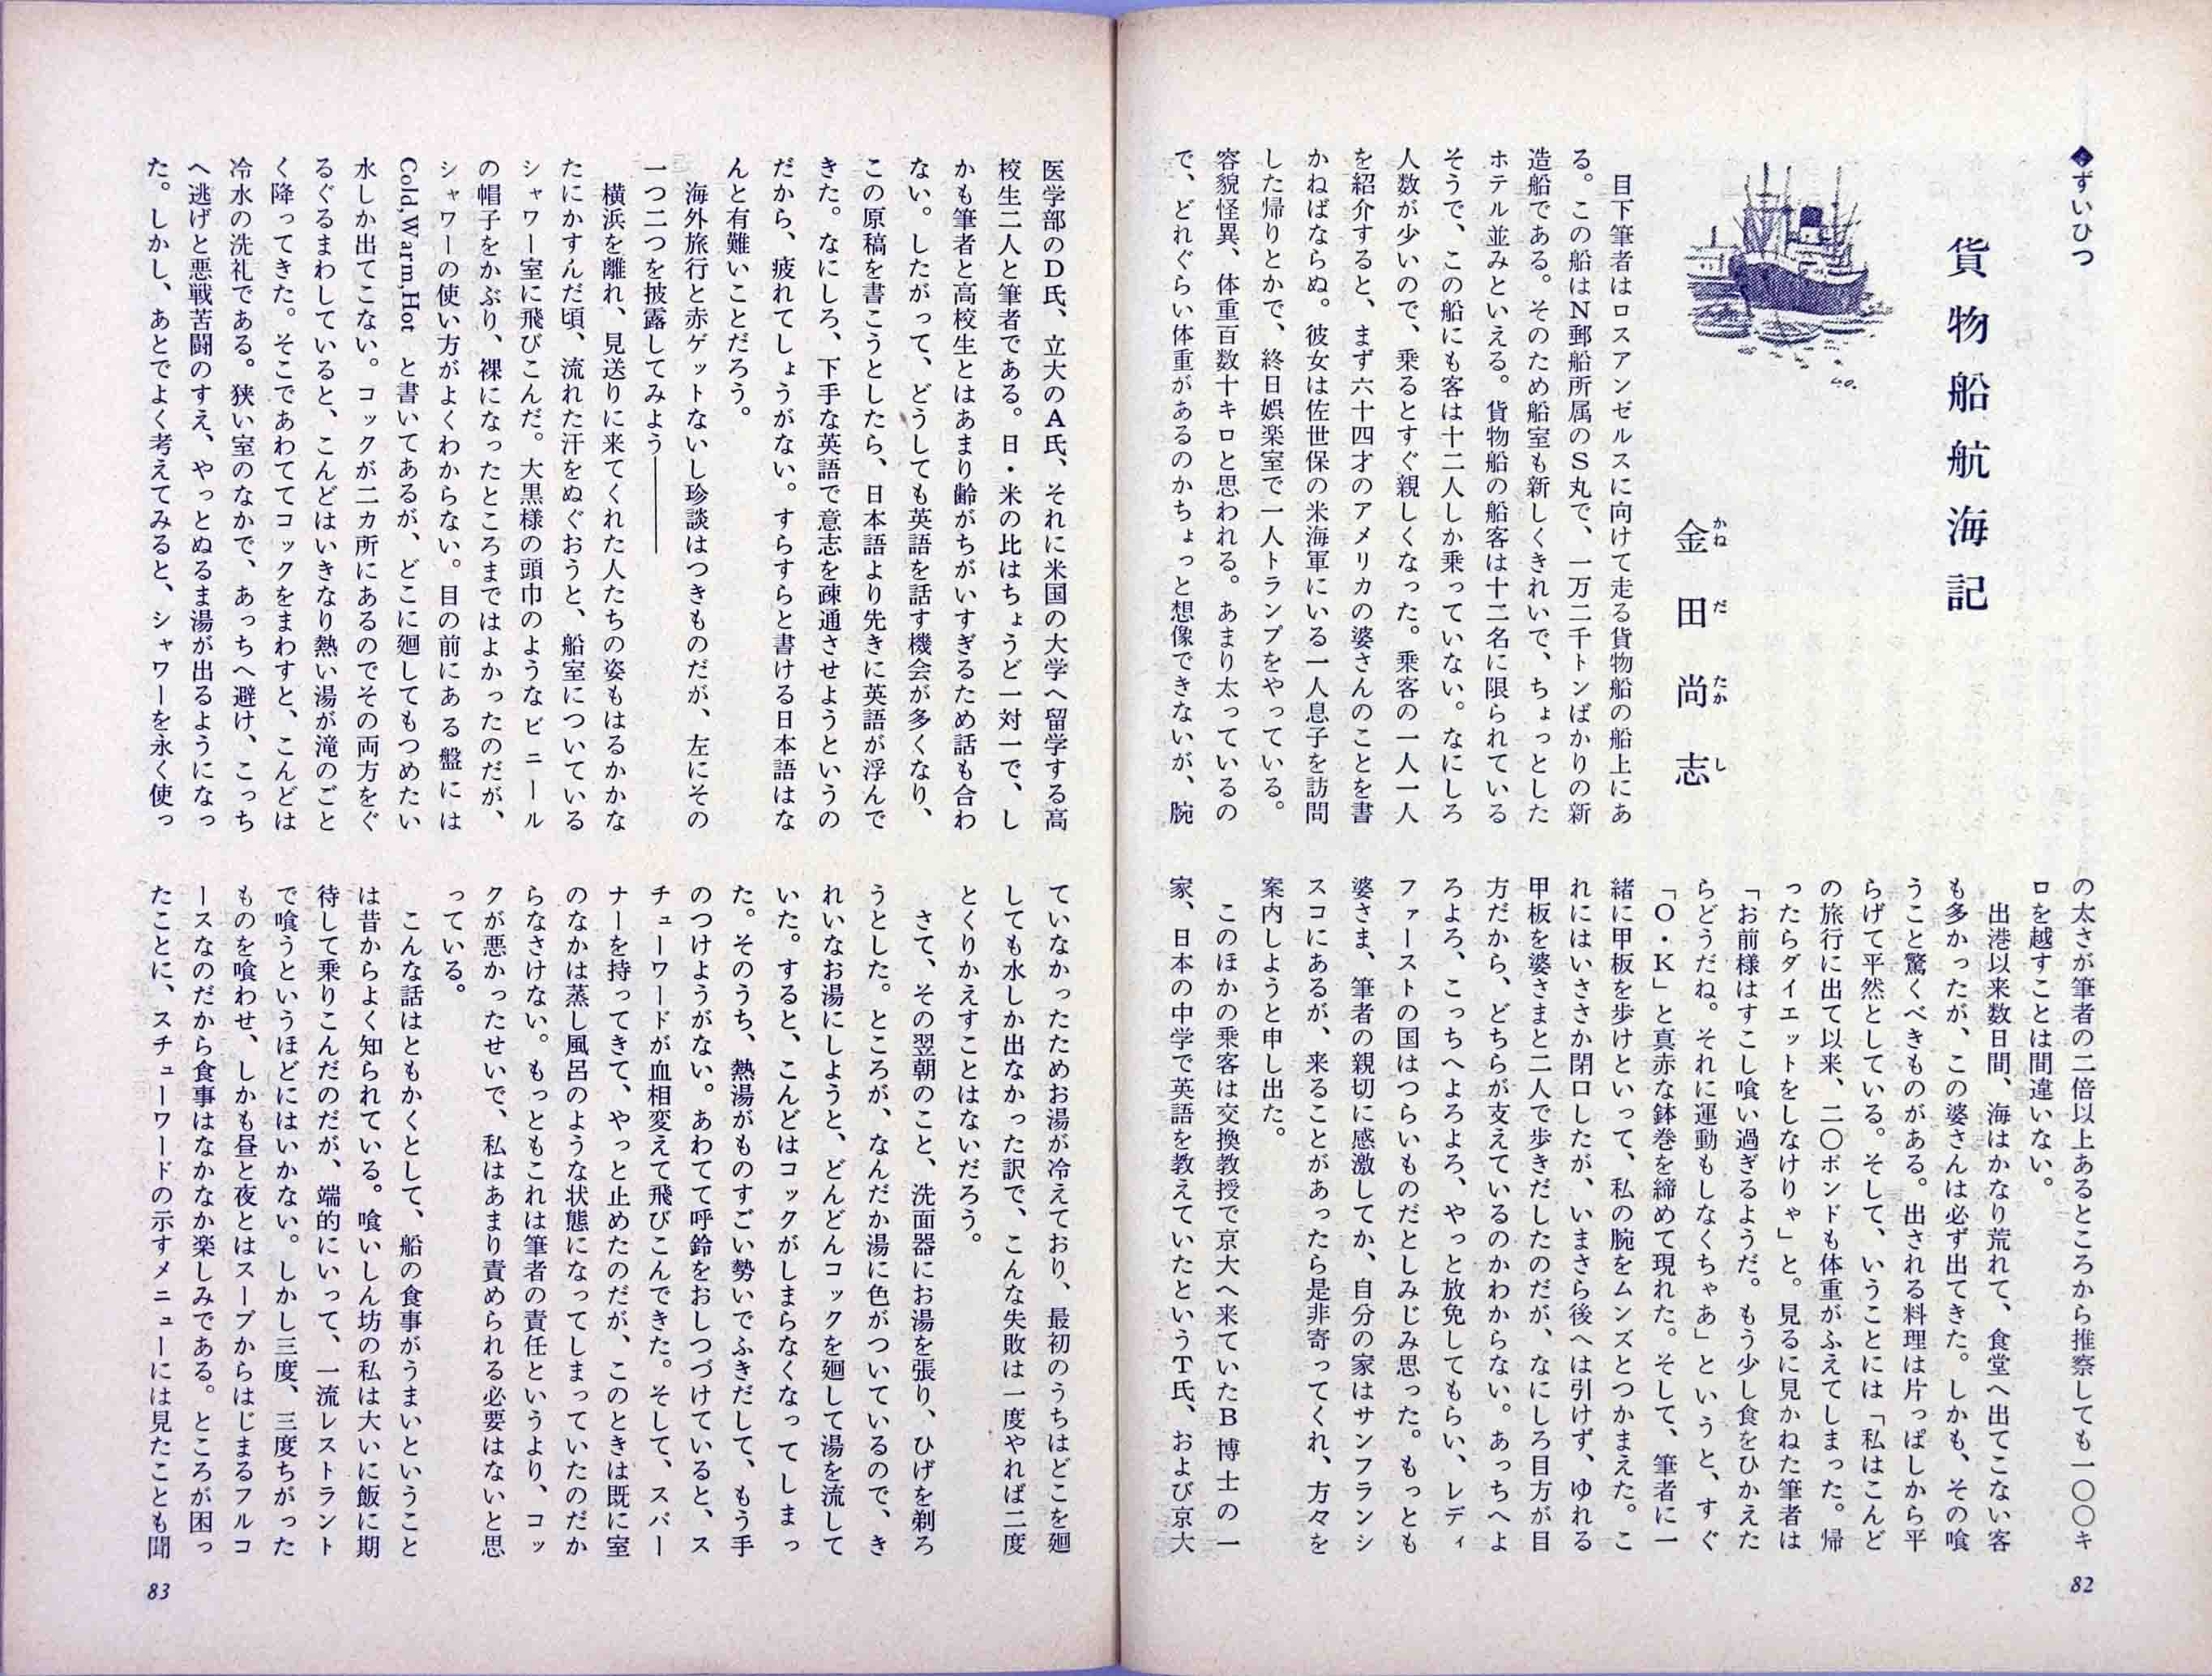 ◆ずいひつ
貨物船航海記
金田尚志
かねだたかし
目下筆者はロスアンゼルスに向けて走る貨物船の船上にあ
る。この船はN郵船所属のS丸で、一万二千トンばかりの新
造船である。そのため船室も新しくきれいで、ちょっとした
ホテル並みといえる。貨物船の船客は十二名に限られている
そうで、この船にも客は十二人しか乗っていない。なにしろ
人数が少いので、乗るとすぐ親しくなった。乗客の一人一人
を紹介すると、まず六十四才のアメリカの婆さんのことを書
かねばならぬ。彼女は佐世保の米海軍にいる一人息子を訪問
した帰りとかで、終日娯楽室で一人トランプをやっている。
容貌怪異、体重百数十キロと思われる。あまり太っているの
で、どれぐらい体重があるのかちょっと想像できないが、腕
の太さが筆者の二倍以上あるところから推察しても一〇〇キ
ロを越すことは間違いない。
出港以来数日間、海はかなり荒れて、食堂へ出てこない客
も多かったが、この婆さんは必ず出てきた。しかも、その喰
うこと驚くべきものがある。出される料理は片っぱしから平
らげて平然としている。そして、いうことには「私はこんど
の旅行に出て以来、二〇ポンドも体重がふえてしまった。帰
ったらダイエットをしなけりゃ」と。見るに見かねた筆者は
「お前様はすこし喰い過ぎるようだ。もう少し食をひかえた
らどうだね。それに運動もしなくちゃあ」というと、すぐ
「O・K」と真赤な鉢巻を締めて現れた。そして、筆者に一
緒に甲板を歩けといって、私の腕をムンズとつかまえた。こ
れにはいささか閉口したが、いまさら後へは引けず、ゆれる
甲板を婆さまと二人で歩きだしたのだが、なにしろ目方が目
方だから、どちらが支えているのかわからない。あっちへよ
ろよろ、こっちへよろよろ、やっと放免してもらい、レディ
ファーストの国はつらいものだとしみじみ思った。もっとも
婆さま、筆者の親切に感激してか、自分の家はサンフランシ
スコにあるが、来ることがあったら是非寄ってくれ、方々を
案内しようと申し出た。
このほかの乗客は交換教授で京大へ来ていたB博士の一
家、日本の中学で英語を教えていたというT氏、および京大
82
医学部のD氏、立大のA氏、それに米国の大学へ留学する高
校生二人と筆者である。日・米の比はちょうど一対一で、し
かも筆者と高校生とはあまり齢がちがいすぎるため話も合わ
ない。したがって、どうしても英語を話す機会が多くなり、
この原稿を書こうとしたら、日本語より先きに英語が浮んで
きた。なにしろ、下手な英語で意志を疎通させようというの
だから、疲れてしょうがない。すらすらと書ける日本語はな
んと有難いことだろう。
海外旅行と赤ゲットないし珍談はつきものだが、左にその
一つ二つを披露してみよう――
横浜を離れ、見送りに来てくれた人たちの姿もはるかかな
たにかすんだ頃、流れた汗をぬぐおうと、船室についている
シャワー室に飛びこんだ。大黒様の頭巾のようなビニール
の帽子をかぶり、裸になったところまではよかったのだが、
シャワーの使い方がよくわからない。目の前にある盤には
Cold,Warm,Hot と書いてあるが、どこに廻してもつめたい
水しか出てこない。コックが二カ所にあるのでその両方をぐ
るぐるまわしていると、こんどはいきなり熱い湯が滝のごと
く降ってきた。そこであわててコックをまわすと、こんどは
冷水の洗礼である。狭い室のなかで、あっちへ避け、こっち
へ逃げと悪戦苦闘のすえ、やっとぬるま湯が出るようになっ
た。しかし、あとでよく考えてみると、シャワーを永く使っ
ていなかったためお湯が冷えており、最初のうちはどこを廻
しても水しか出なかった訳で、こんな失敗は一度やれば二度
とくりかえすことはないだろう。
さて、その翌朝のこと、洗面器にお湯を張り、ひげを剃ろ
うとした。ところが、なんだか湯に色がついているので、き
れいなお湯にしようと、どんどんコックを廻して湯を流して
いた。すると、こんどはコックがしまらなくなってしまっ
た。そのうち、熱湯がものすごい勢いでふきだして、もう手
のつけようがない。あわてて呼鈴をおしつづけていると、ス
チューワードが血相変えて飛びこんできた。そして、スパー
ナーを持ってきて、やっと止めたのだが、このときは既に室
のなかは蒸し風呂のような状態になってしまっていたのだか
らなさけない。もっともこれは筆者の責任というより、コッ
クが悪かったせいで、私はあまり責められる必要はないと思
っている。
こんな話はともかくとして、船の食事がうまいということ
は昔からよく知られている。喰いしん坊の私は大いに飯に期
待して乗りこんだのだが、端的にいって、一流レストラント
で喰うというほどにはいかない。しかし三度、三度ちがった
ものを喰わせ、しかも昼と夜とはスープからはじまるフルコ
ースなのだから食事はなかなか楽しみである。ところが困っ
たことに、スチューワードの示すメニューには見たことも聞
83